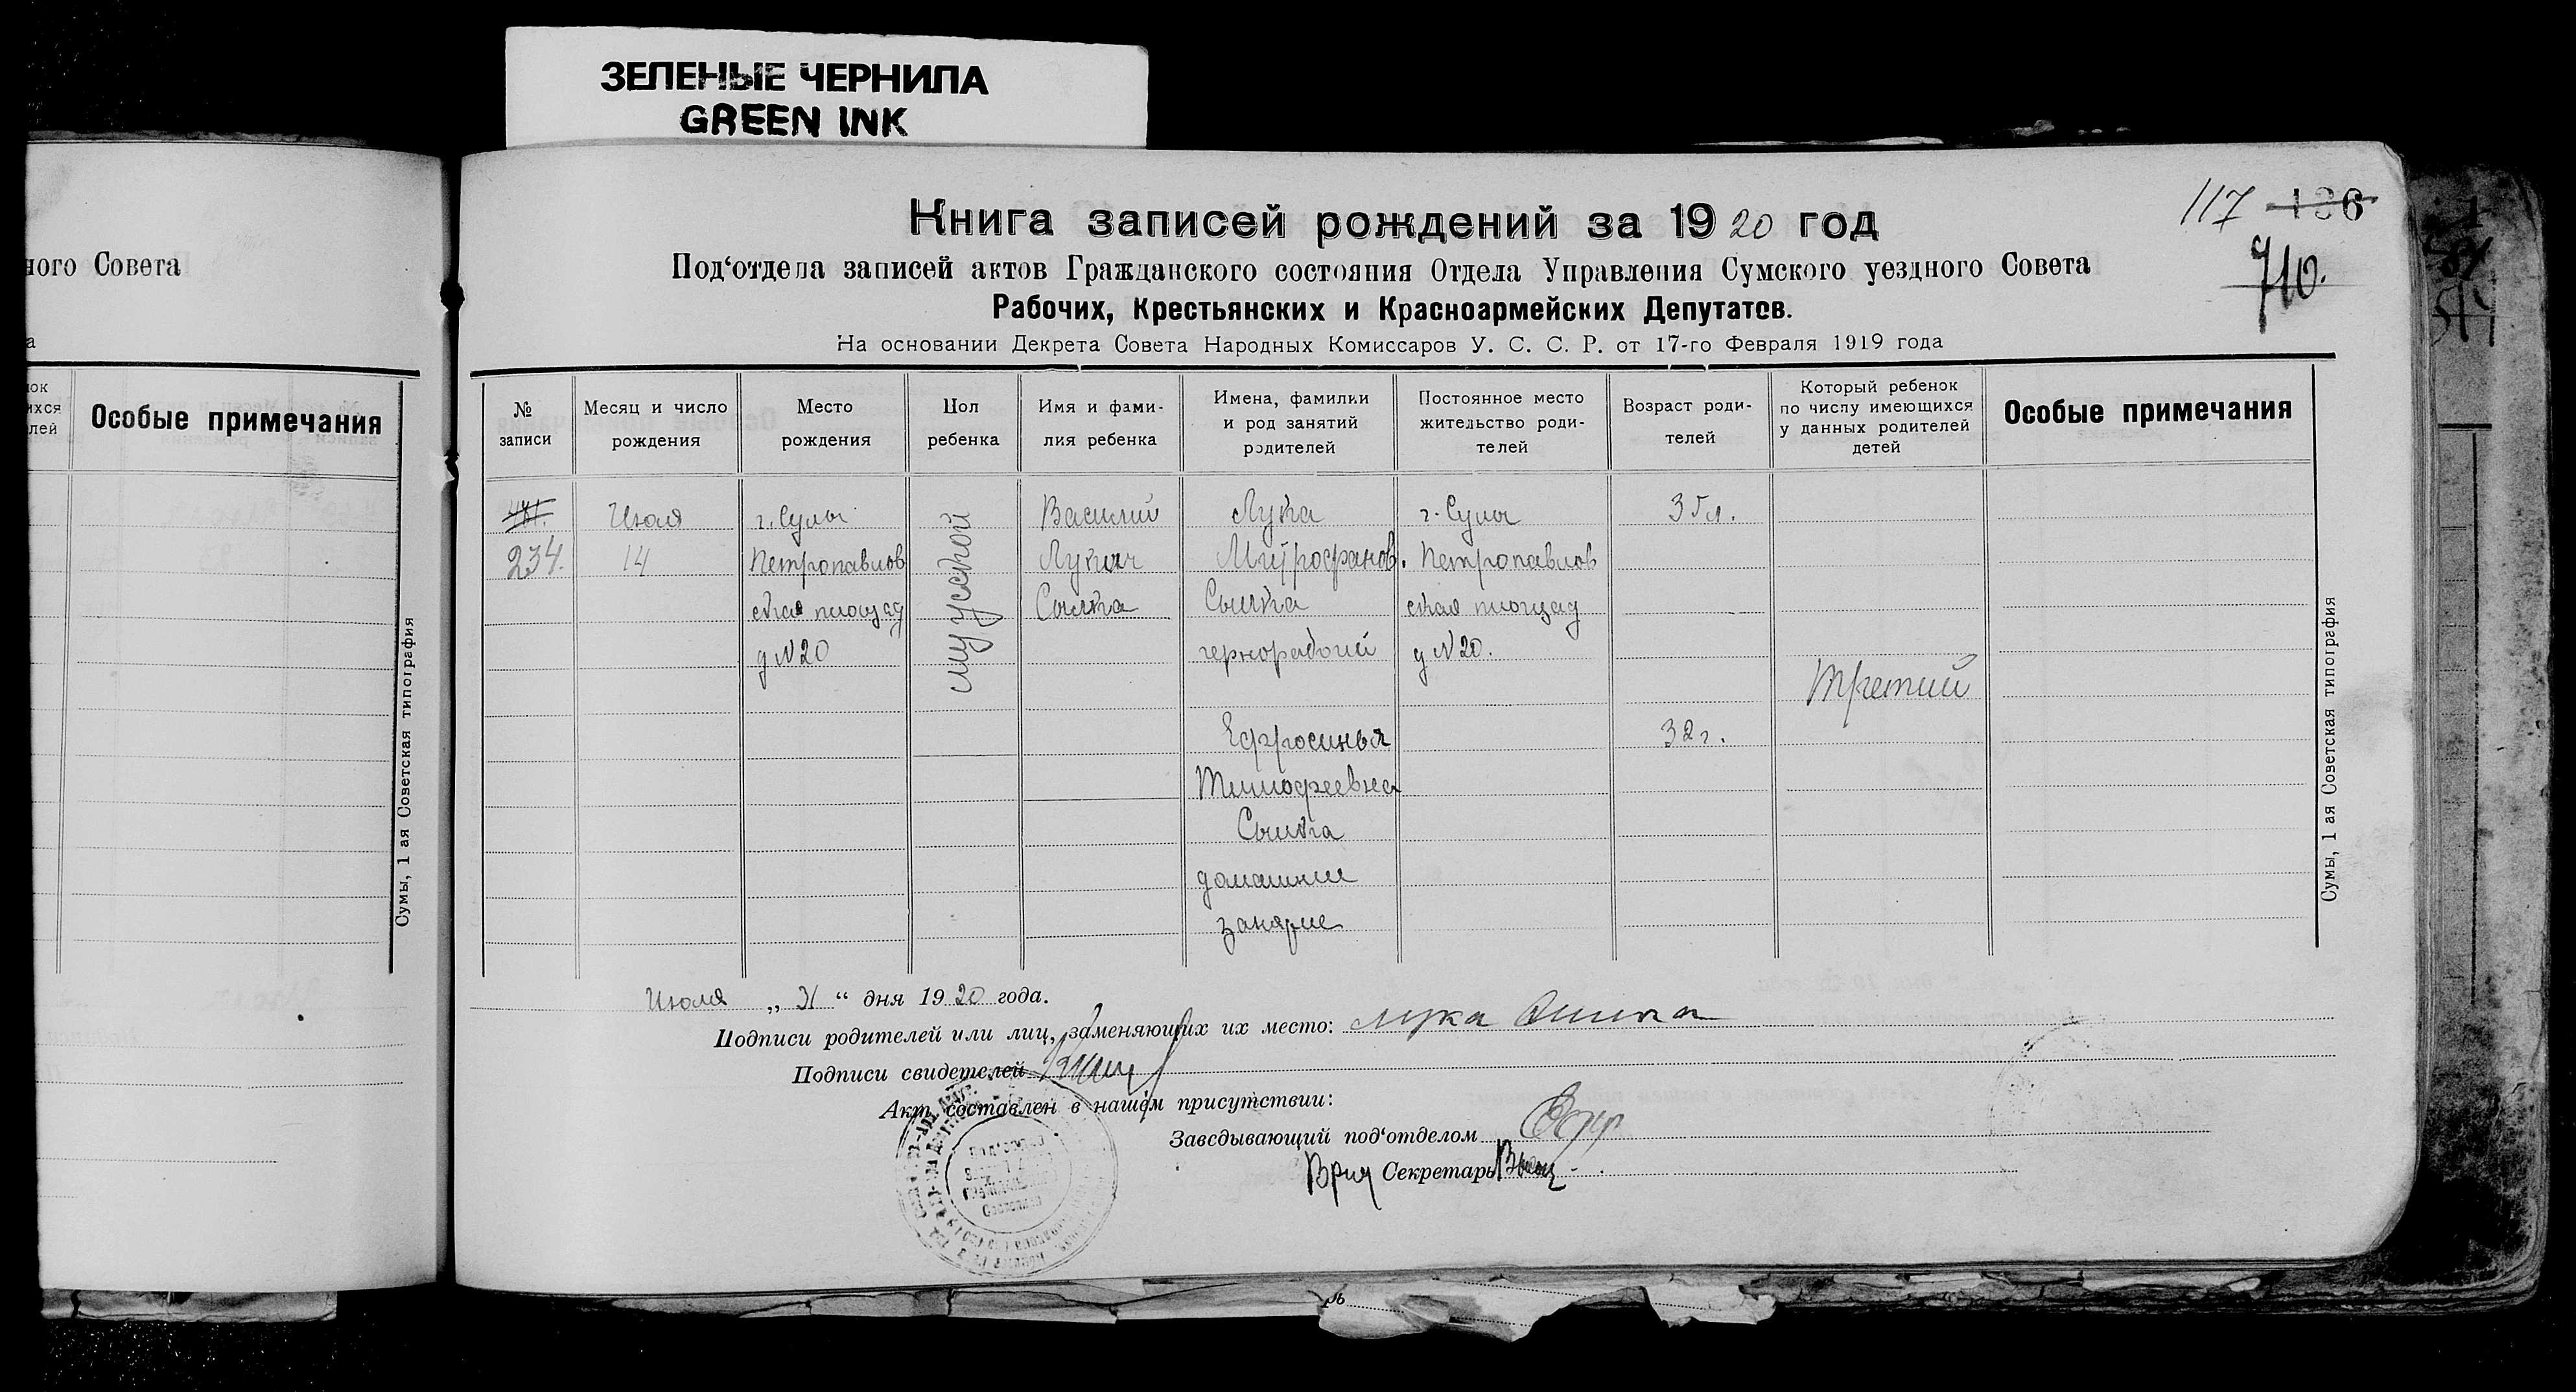 ЗЕЛЕНЫЕ ЧЕРНИЛА
GREEN INK
ного Совета
Особые примечания
Сумы, 1 ая Советская типография
117 136
710.
Книга записей рождений за 1920 год
Под‘отдела записей актов Гражданского состояния Отдела Управления Сумского уездного Совета
Рабочих, Крестьянских и Красноармейских Депутатов.
На основании Декрета Совета Народных Комиссаров У. С. С. Р. от 17-го Февраля 1919 года
№ записи
Месяц и число рождения
Место рождения
Пол ребенка
Имя и фами-
лия ребенка
Имена, фамилии
и род занятий
родителей
Постоянное место
жительство роди-
телей
Возраст роди-
телей
Который ребенок
по числу имеющихся
у данных родителей
детей
Особые примечания
481.
234.
Июля
14
г. Сумы
Петропавлов
ская площад
д N 20
мужской
Василий
Лукич
Лука
Митрофанов.
чернорабочий
Ефросинья
Тимофеевна
домашние
занятие
г. Сумы
Петропавлов
ская площад
д N 20.
35 л.
32 г.
Третий
Июля „ 31 “ дня 1920 года.
Подписи родителей или лиц, заменяющих их место: Лука
Подписи свидетелей
Акт составлен в нашем присутствии:
Заведывающий под‘отделом
Врид Секретарь
Сумы, 1 ая Советская типография